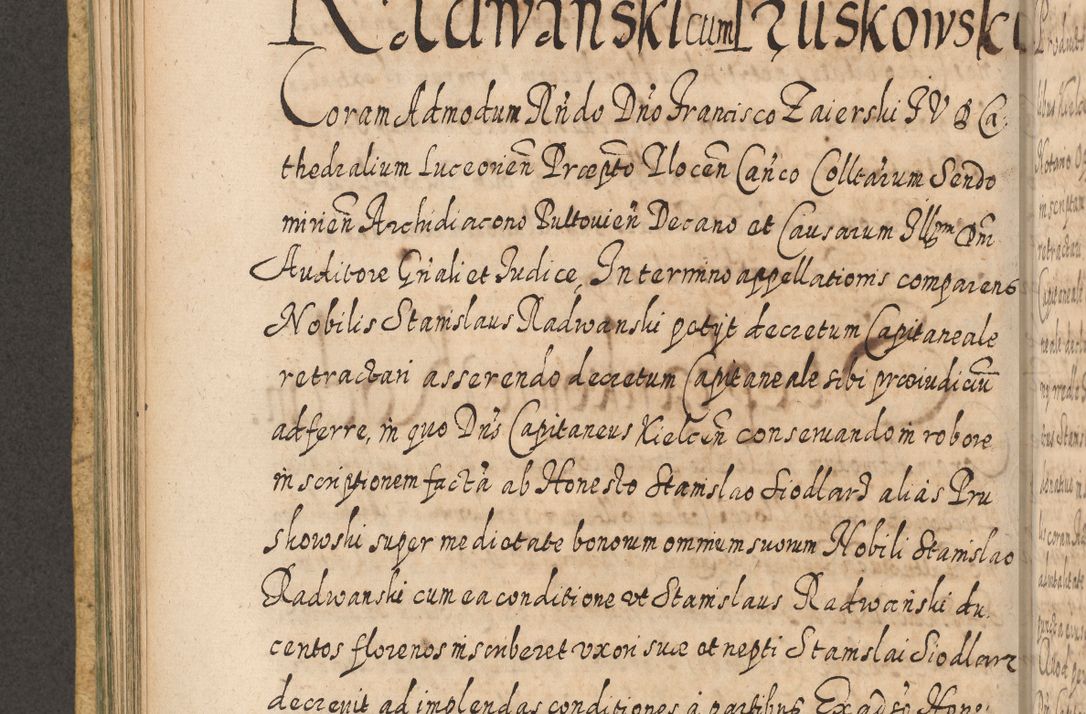 Radwański cum Pruskowski
Coram Admodum Rñdo Dño Francisco Zaierski J V D Ca
thedralium Luceorien̄ Præpto Plocen̄ Cañco Colltarum Sendo
mirien̄ Archidiacono Pultovien̄ Decano et Causarum Illmi Dni
Auditore Gñali et Iudice, In termino appellationis comparens
Nobilis Stanislaus Radwanski potijt decretum Capitaneale
retractari asserendo decretum Capitaneale sibi præiudiciū
adferre, in quo Dñs Capitaneus Kielcen̄ conseruando in robore
inscriptionem factā ab Honesto Stanislao Siodlarz alias Pru
skowski super medietate bonorum omnium suorum Nobili Stanislao
Radwanski cum ea conditione vt Stanislaus Radwański du
centos florenos inscriberet vxori suæ et nepti Stanislai Siodlarz
decrevit ad implendas conditiones á partibus Ex adso Hone